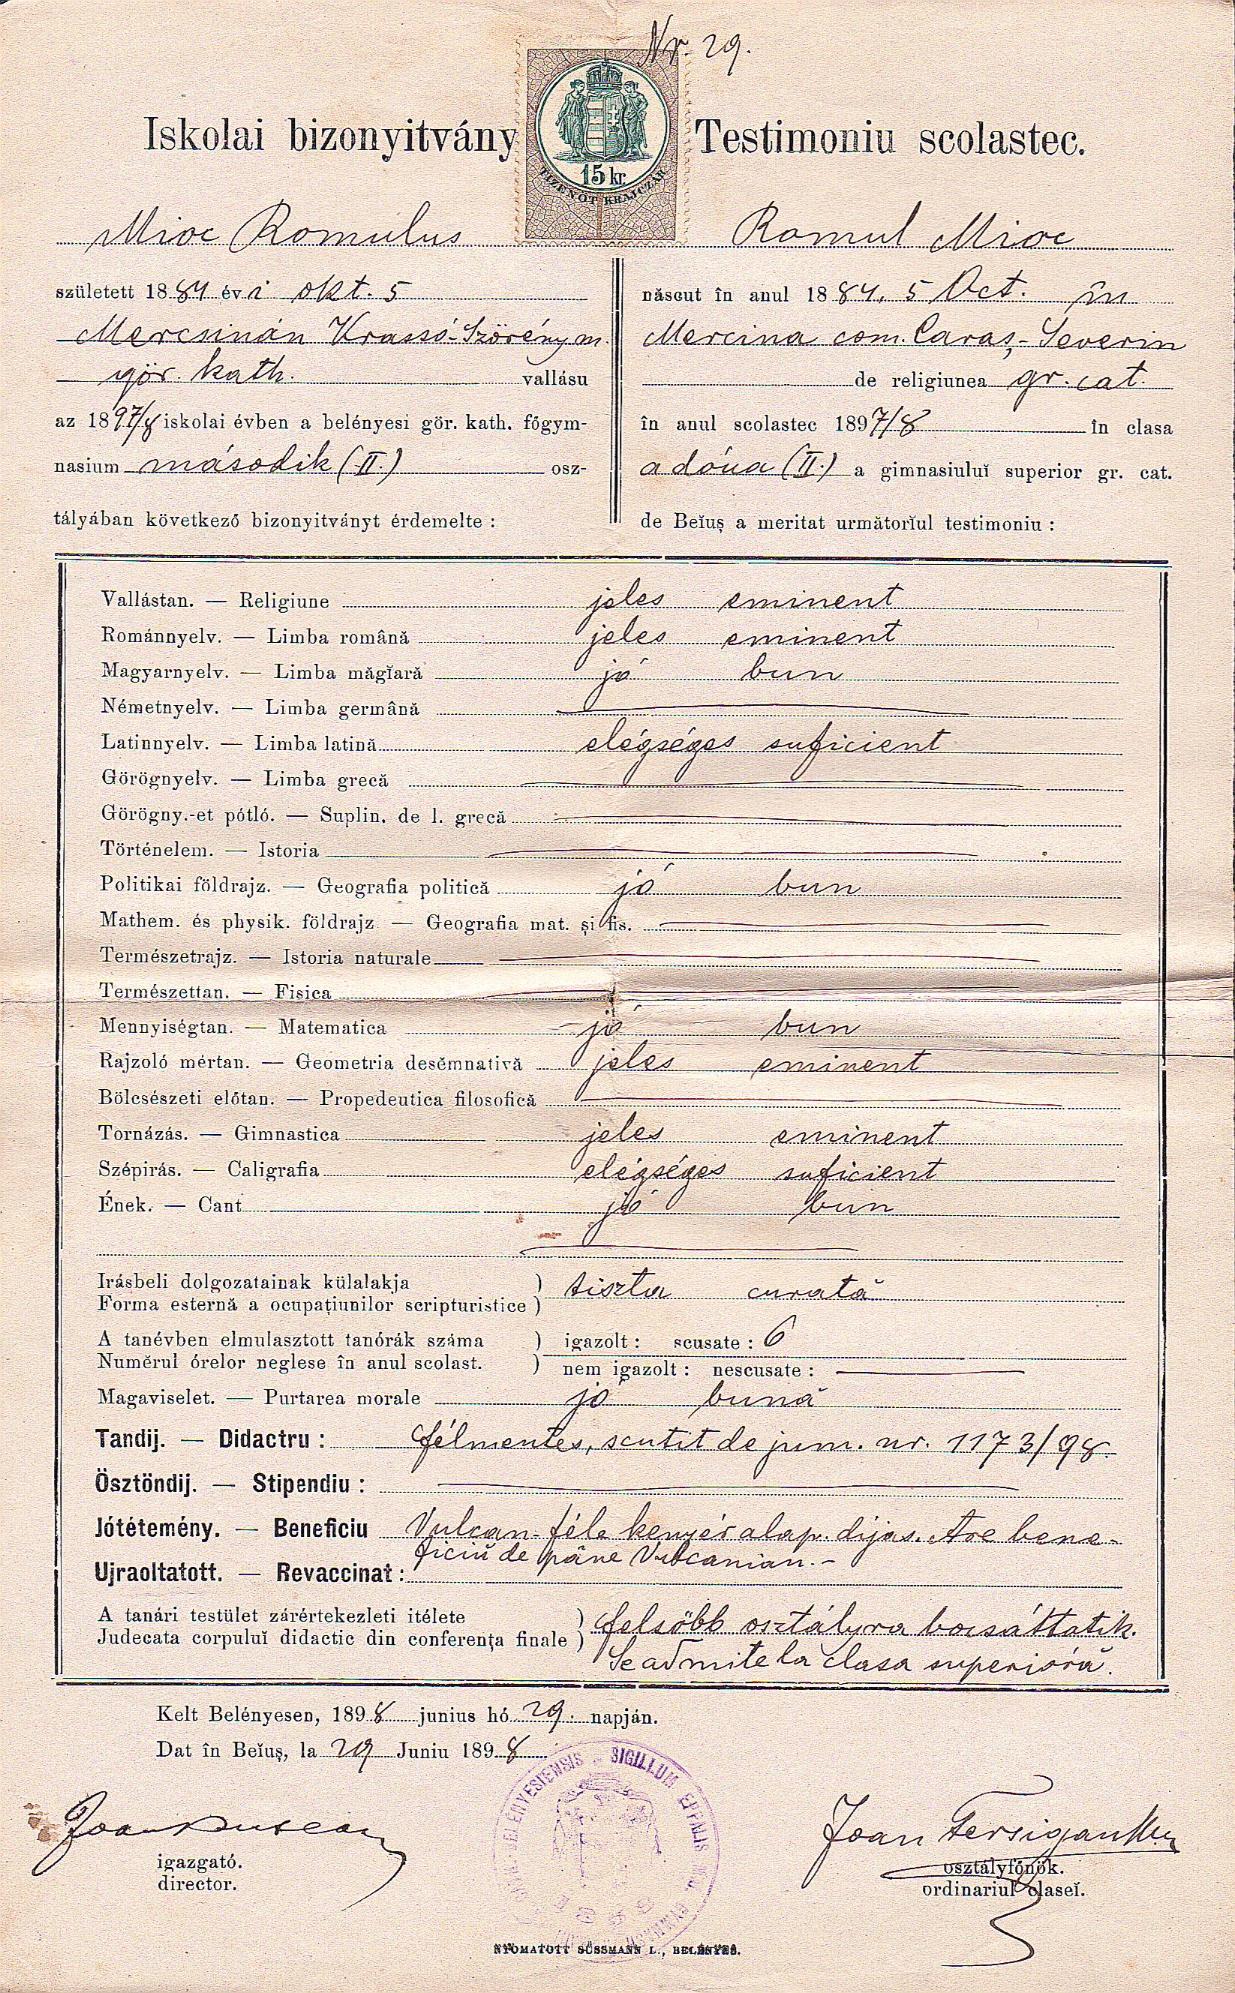 Nr. 29.
Iskolai bizonyitvány
Testimoniu scolastec.
15 kr.
TIZENÖT KRAJCZÁR
Mioc Romulus
született 1884 évi okt. 5
Mercsinán Krassó-Szörény m.
gör. kath. vallásu
az 1897/8 iskolai évben a belényesi gör. kath. főgym-
nasium második (II.) osz-
tályában következő bizonyitványt érdemelte :
Romul Mioc
născut în anul 1884, 5 Oct. în
Mercina com. Caraș-Severin
de religiunea gr. cat.
în anul scolastec 1897/8 în clasa
a dóua (II.) a gimnasiuluĭ superior gr. cat.
de Beĭuș a meritat următorĭul testimoniu :
Vallástan. — Religiune jeles eminent
Románnyelv. — Limba română jeles eminent
Magyarnyelv. — Limba măgĭară jó bun
Németnyelv. — Limba germână
Latinnyelv. — Limba latină elégséges suficient
Görögnyelv. — Limba grecă
Görögny.-et pótló. — Suplin. de l. grecă
Történelem. — Istoria
Politikai földrajz. — Geografia politică jó bun
Mathem. és physik. földrajz — Geografia mat. și fis.
Természetrajz. — Istoria naturale
Természettan. — Fisica
Mennyiségtan. — Matematica jó bun
Rajzoló mértan. — Geometria desĕmnativă jeles eminent
Bölcsészeti előtan. — Propedeutica filosofică
Tornázás. — Gimnastica jeles eminent
Szépirás. — Caligrafia elégséges suficient
Ének. — Cant jó bun
Irásbeli dolgozatainak külalakja
Forma esternă a ocupațiunilor scripturistice ) tiszta curată
A tanévben elmulasztott tanórák száma ) igazolt : scusate : 6
Numĕrul órelor neglese în anul scolast. ) nem igazolt : nescusate :
Magaviselet. — Purtarea morale jó bună
Tandij. — Didactru : félmentes, scutit de jum. nr. 1173/98.
Ösztöndij. — Stipendiu :
Jótétemény. — Beneficiu Vulcan-féle kenyéralap. díjas. Are bene-
ficiŭ de pâne Vulcanian. -
Ujraoltatott. — Revaccinat :
A tanári testület zárértekezleti itélete ) felsőbb osztályra bocsáttatik.
Judecata corpuluĭ didactic din conferența finale ) Se admite la clasa superióră.
Kelt Belényesen, 1898 junius hó 29. napján.
Dat în Beĭuș, la 29 Juniu 1898
igazgató.
director.
Joan
osztályfőnök.
ordinariul claseĭ.
SIGILLUM
BELÉNYESIENSIS
NYOMATOTT SÜSSMANN L., BELÉNYES.